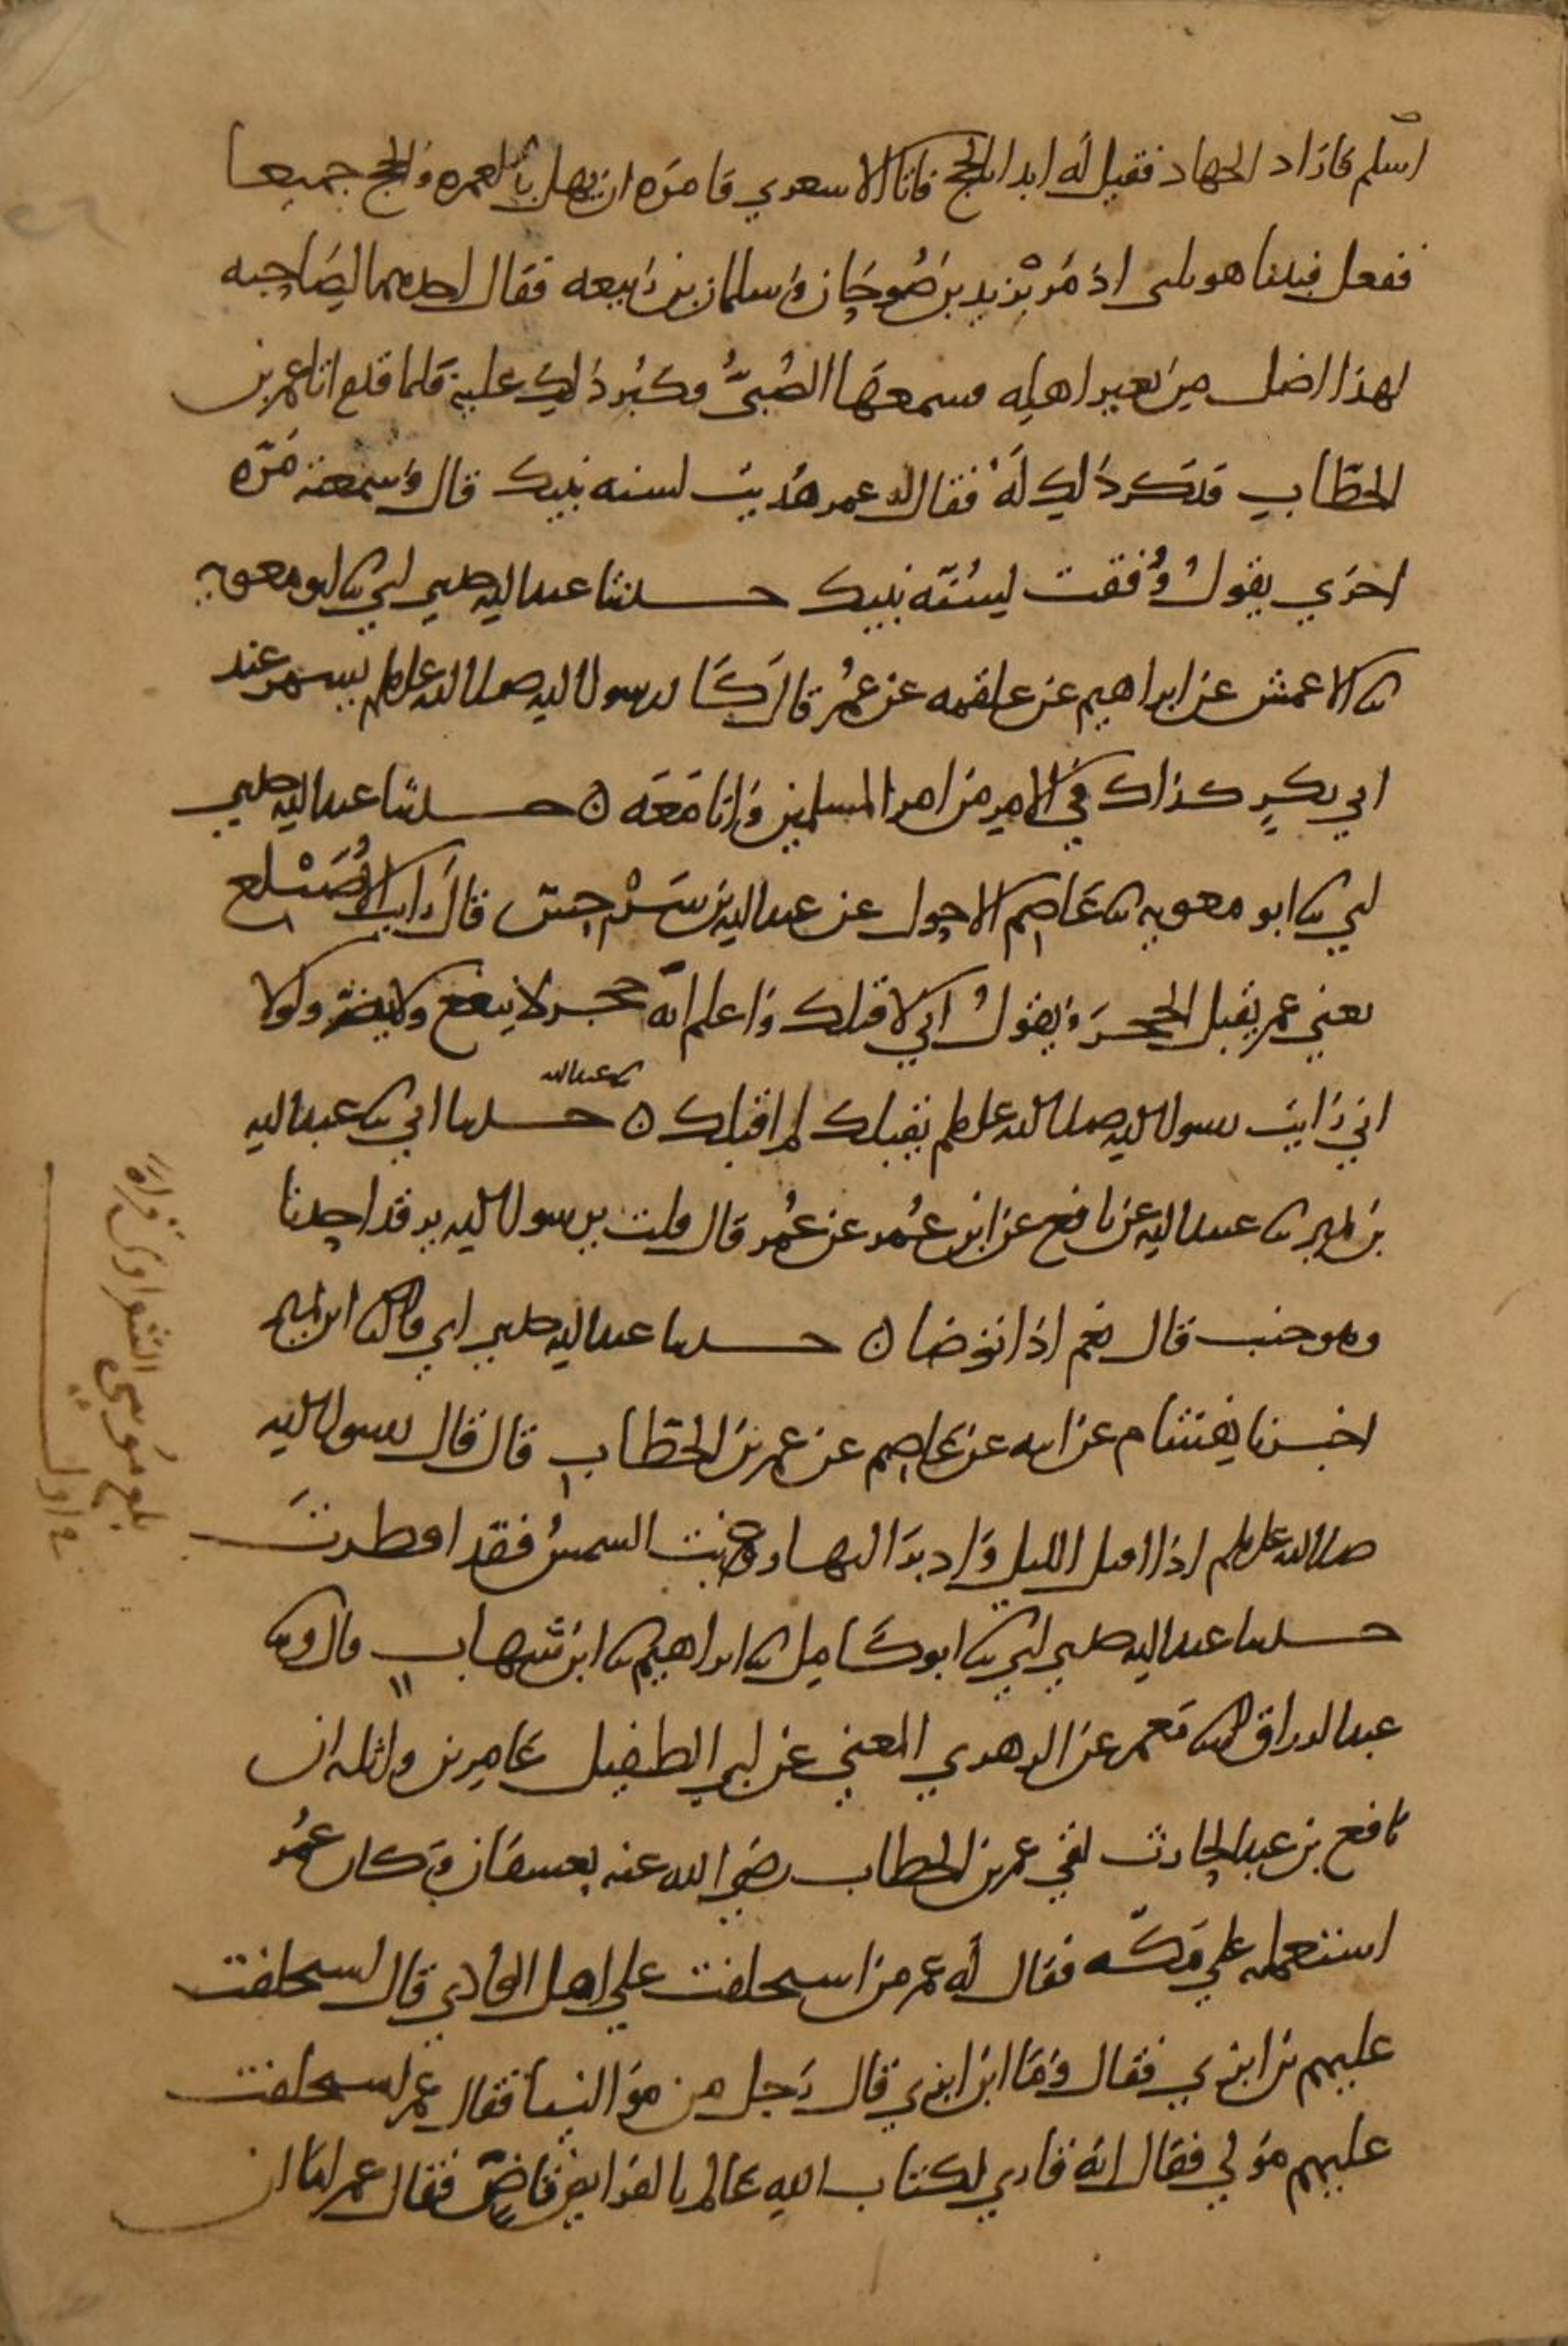 اسلم فاراد الجهاد فقيل له ابدا بالحج فاتا الاشعري فامره ان يهل بالعمره والحج جميعا
ففعل فبينا هو يلبي اذ مر بزيد بن صوحان وسلمان بن ربيعه فقال احدهما لصاحبه
لهذا اضل من بعير اهله فسمعها الصبي فكبر ذلك عليه فلما قدم اتا عمر بن
الخطاب فذكر ذلك له فقال له عمر هديت لسنه نبيك قال وسمعته مره
اخري يقول وفقت لسنه نبيك حدثنا عبد الله حدثني ابي ثنا ابو معويه
ثنا الاعمش عن ابراهيم عن علقمه عن عمر قال كان رسول الله صلى الله عليه وسلم يسمر عند
ابي بكر كذاك في الامر من امر المسلمين وانا معه ه حدثنا عبد الله حدثني
ابي ثنا ابو معويه ثنا عاصم الاحول عن عبد الله بن سرجس قال رايت الاصيلع
يعني عمر يقبل الحجر ويقول اني لاقبلك واعلم انه حجر لا ينفع ولا يضر ولولا
اني رايت رسول الله صلى الله عليه وسلم يقبلك لم اقبلك ه ثنا عبد الله حدثنا ابي ثنا عبد الله
بن نمير ثنا عبيد الله عن نافع عن ابن عمر عن عمر قال قلت يرسول الله يرقد احدنا
وهو جنب قال نعم اذا توضا ه حدثنا عبد الله حدثني ابي قال ثنا ابن نمير
اخبرنا هشام عن ابيه عن عاصم عن عمر بن الخطاب قال قال رسول الله
صلى الله عليه وسلم اذا اقبل الليل وادبر النهار وغربت الشمس فقد افطرت
حدثنا عبد الله حدثني ابي ثنا ابو كامل ثنا ابراهيم ثنا ابن شهاب قال وثنا
عبد الرزاق ثنا معمر عن الزهري المعني عن ابي الطفيل عامر بن واثله ان
نافع بن عبد الحارث لقي عمر بن الخطاب رضي الله عنه بعسفان وكان عمر
استعمله علي مكه فقال له عمر من استخلفت علي اهل الوادي قال استخلفت
عليهم بن ابزي فقال وما ابن ابزي قال رجل من موالينا فقال عمر استخلفت
عليهم مولي فقال انه قاري لكتاب الله عالم بالفرايض قاض فقال عمر اما ان
بلغ موسى قراه